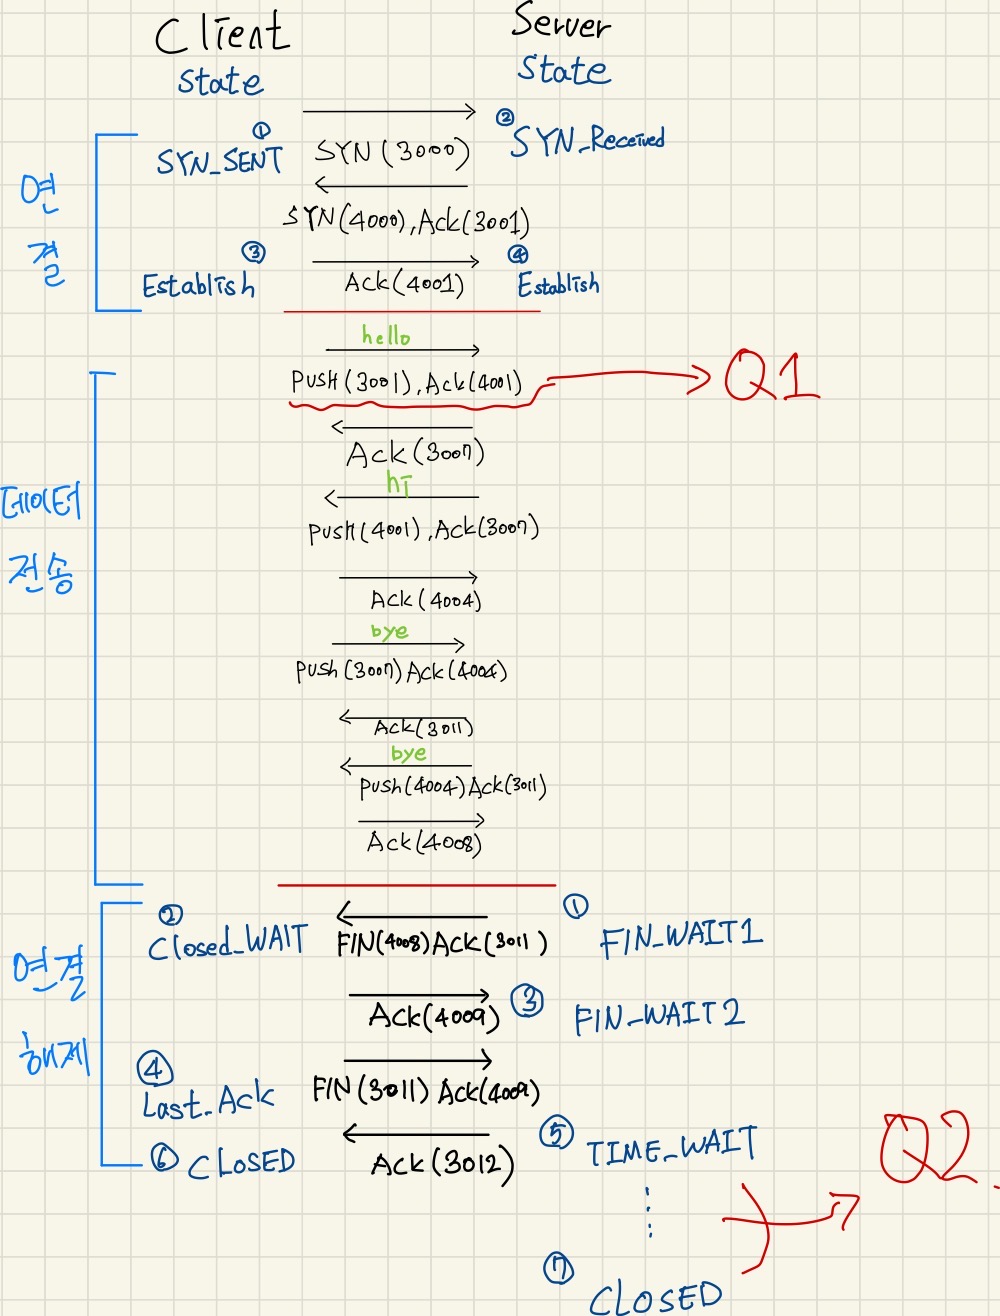 Client
Server
State
State
① SYN_SENT
SYN(3000)
② SYN_Received
연결
SYN(4000),Ack(3001)
③ Establish
Ack(4001)
④ Establish
hello
PUSH(3001),Ack(4001)
Q1
Ack(3007)
hi
PUSH(4001),Ack(3007)
데이터
전송
Ack(4004)
bye
Push(3007)Ack(4004)
Ack(3011)
bye
Push(4004)Ack(3011)
Ack(4008)
② Closed_WAIT
FIN(4008)Ack(3011)
① FIN_WAIT1
연결
해제
Ack(4009)
③ FIN_WAIT2
④ Last_Ack
FIN(3011) Ack(4009)
⑥ CLOSED
Ack(3012)
⑤ TIME_WAIT
Q2.
⑦ CLOSED